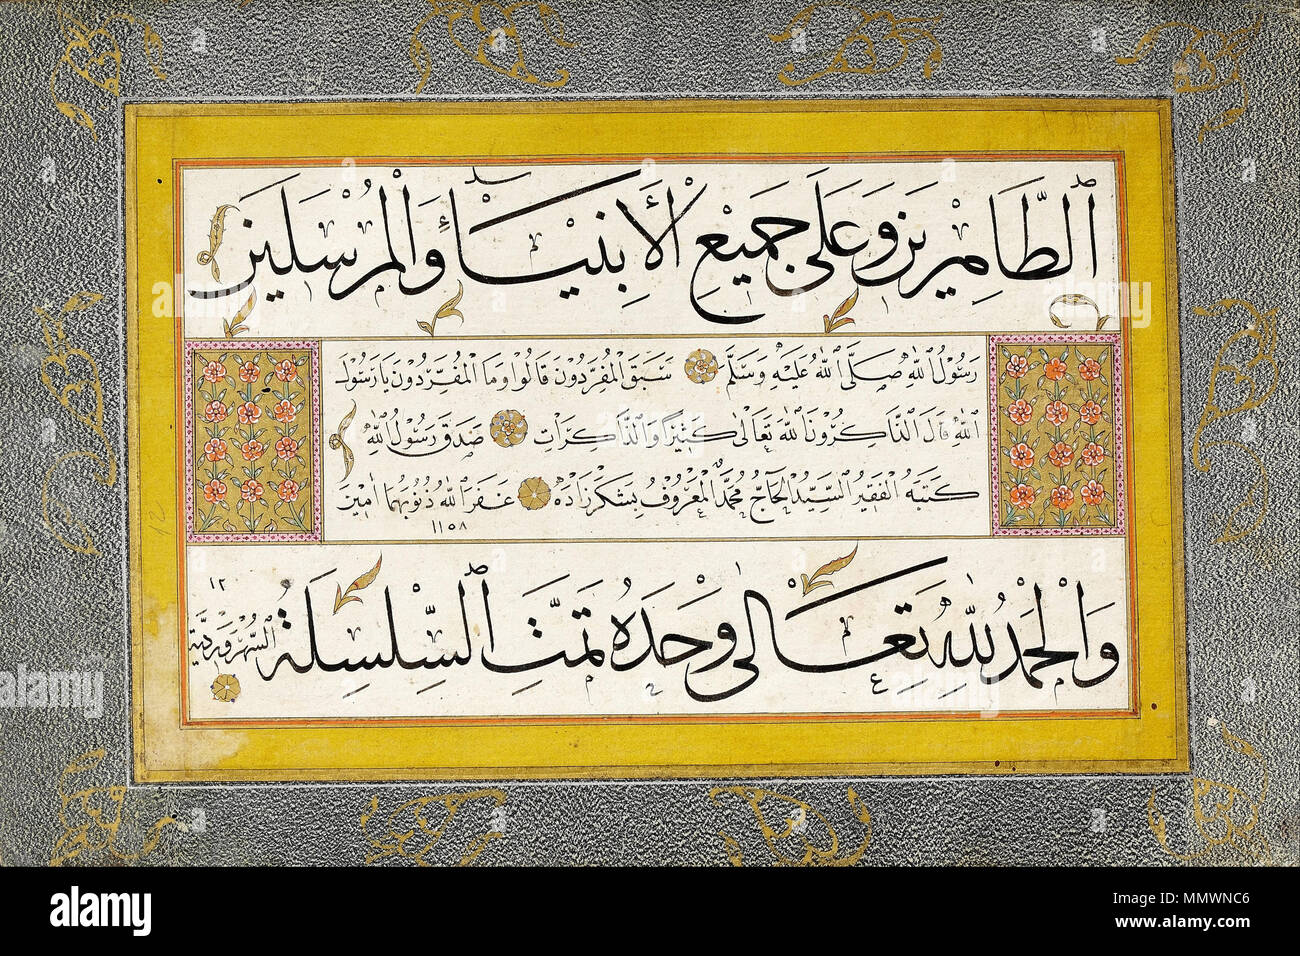 الطَّاهِرِينَ وَعَلَى جَمِيعِ الْأَنْبِيَاءِ وَالْمُرْسَلِينَ
رَسُولُ اللهِ صَلَّى اللهُ عَلَيْهِ وَسَلَّمَ سَبَقَ الْمُفَرِّدُونَ قَالُوا وَمَا الْمُفَرِّدُونَ يَا رَسُولَ
اللهِ قَالَ الذَّاكِرُونَ اللهَ تَعَالَى كَثِيرًا وَالذَّاكِرَاتِ صَدَقَ رَسُولُ اللهِ
كَتَبَهُ الْفَقِيرُ السَّيِّدُ الْحَاجُّ مُحَمَّدُ الْمَعْرُوفُ بِشَكَرْزَادَه غَفَرَ اللهُ ذُنُوبَهُمَا آمِينَ
١١٥٨
وَالْحَمْدُ لِلّٰهِ تَعَالَى وَحْدَهُ تَمَّتِ السِّلْسِلَةُ السُّهْرَوَرْدِيَّةِ
١٢
12
alamy
Image ID: MMWNC6
www.alamy.com